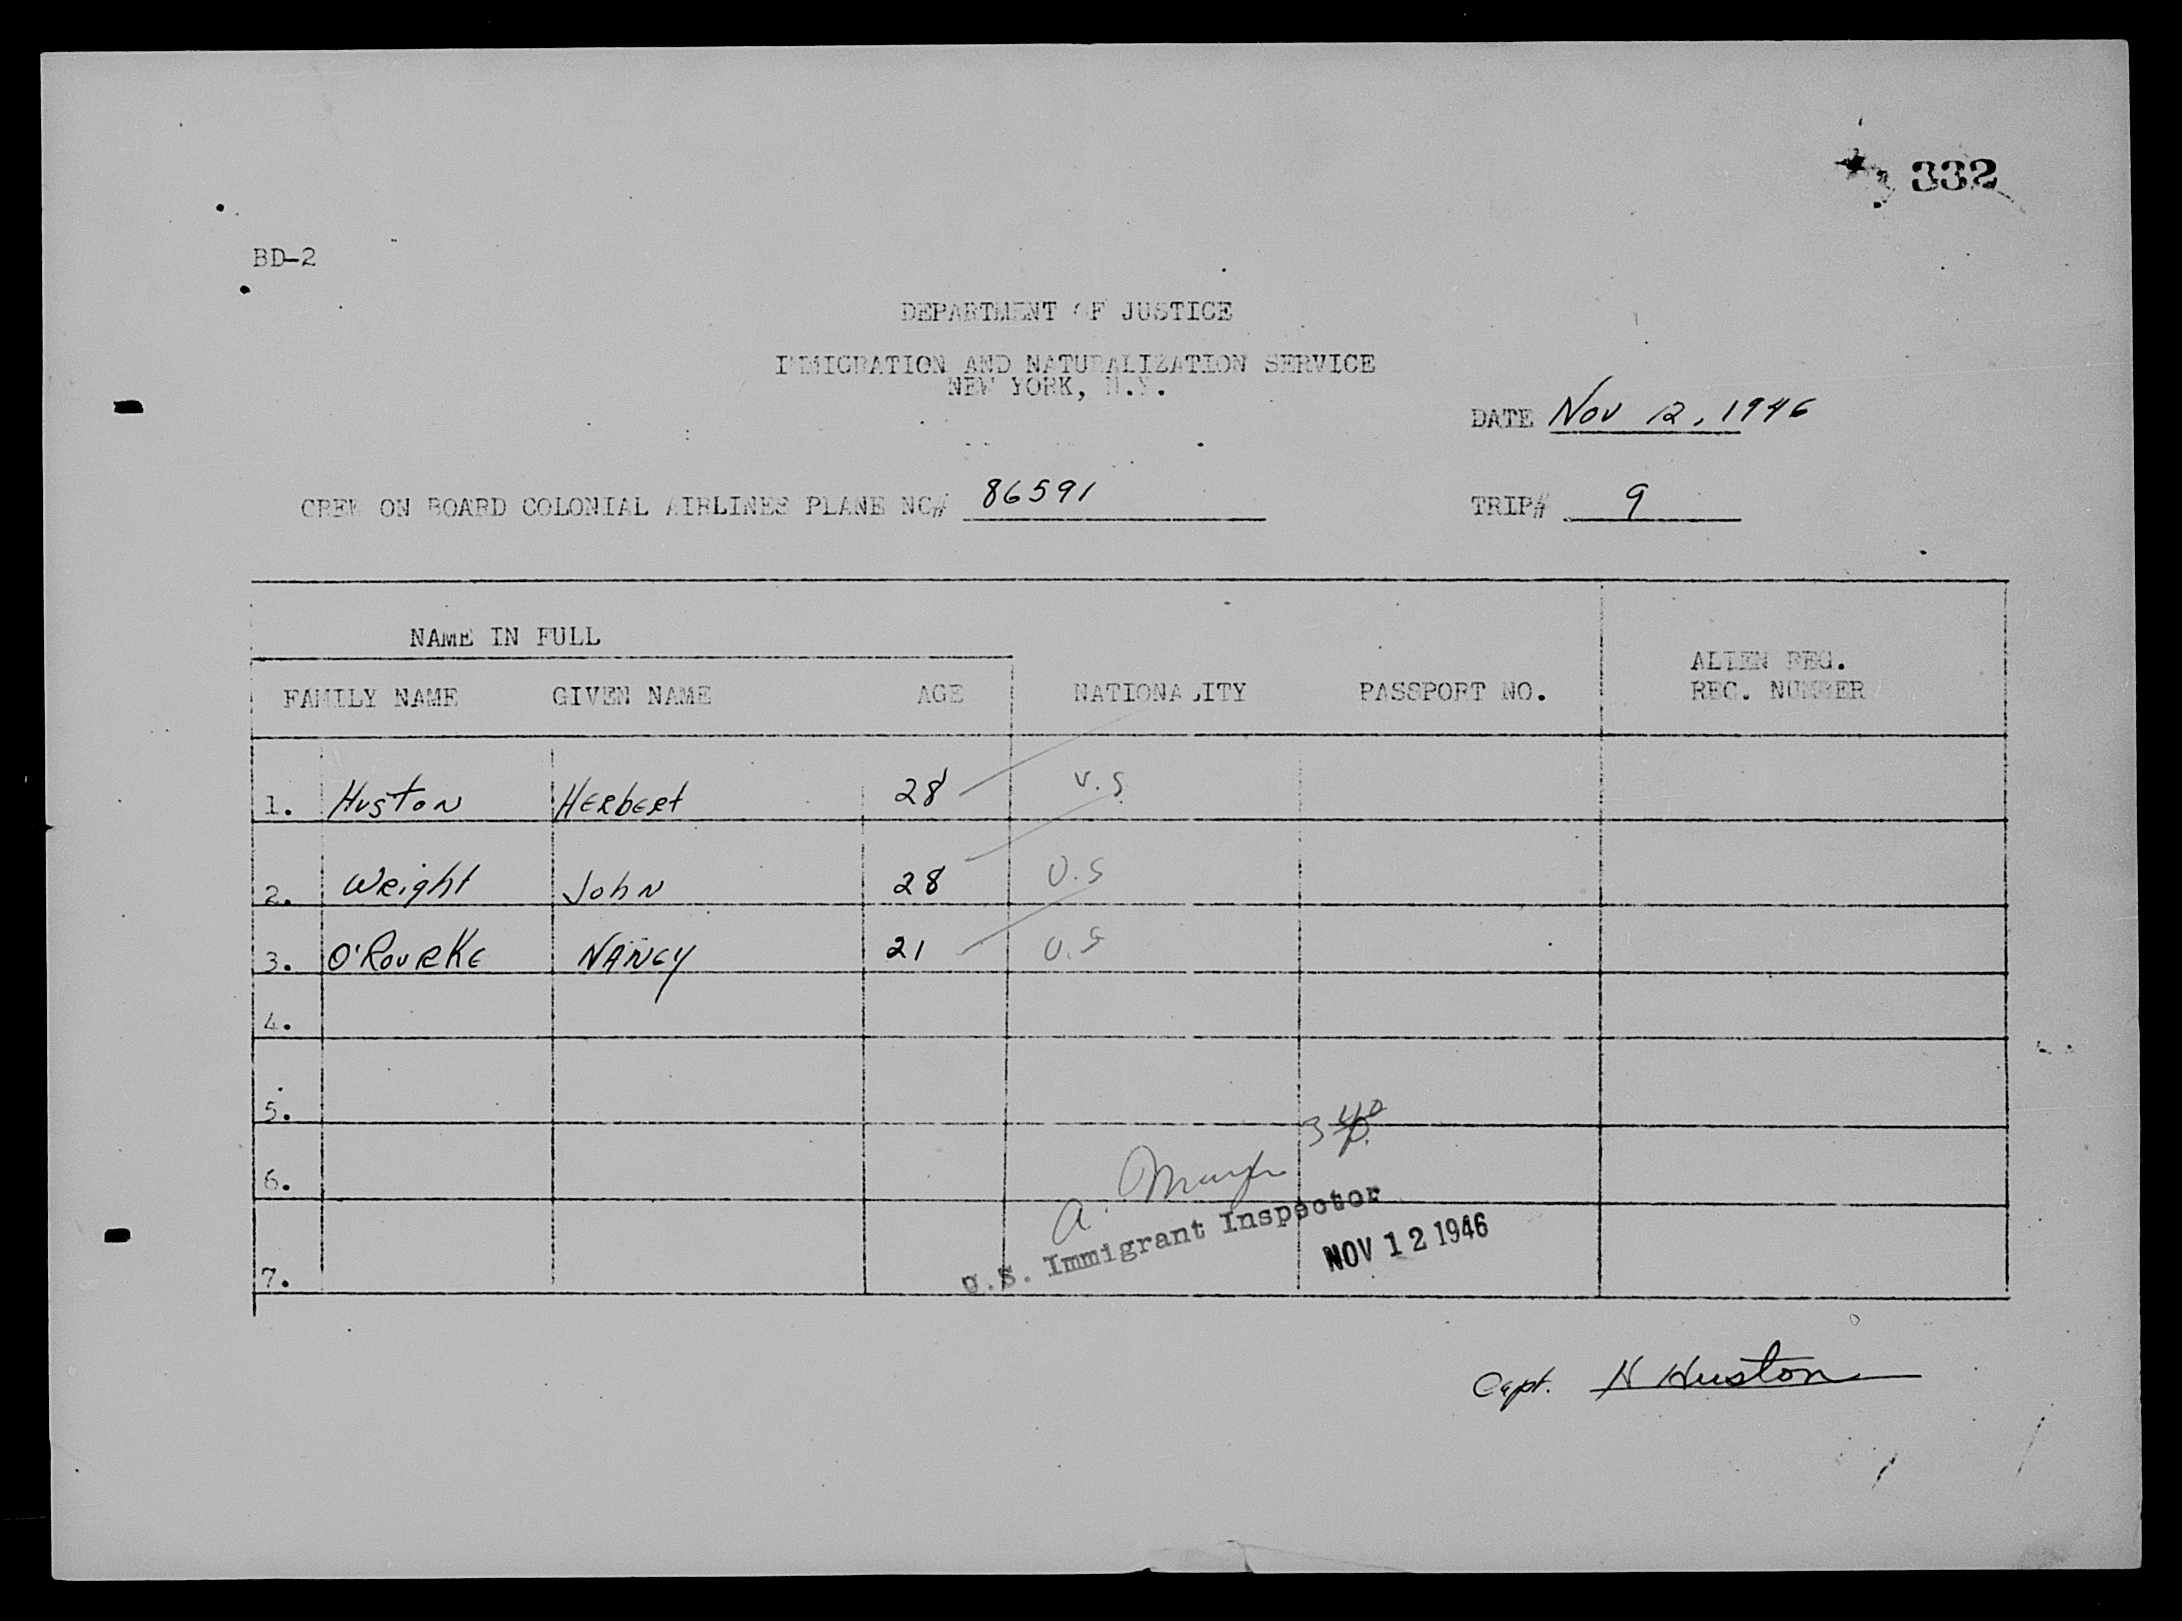 332
BD-2
DEPARTMENT OF JUSTICE
IMMIGRATION AND NATURALIZATION SERVICE
NEW YORK, N.Y.
DATE Nov 12, 1946
CREW ON BOARD COLONIAL AIRLINES PLANE NO# 86591 TRIP# 9
NAME IN FULL
ALIEN REG.
FAMILY NAME GIVEN NAME AGE NATIONALITY PASSPORT NO. REC. NUMBER
1. Huston Herbert 28 U.S
2. Wright John 28 U.S
3. O'Rourke Nancy 21 U.S
4.
5.
6.
A.
U.S. Immigrant Inspector
NOV 12 1946
7.
Capt. H Huston